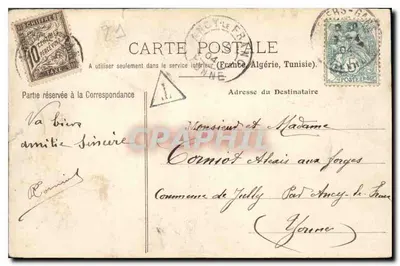 CHIFFRE
10
CENTIMES
A
PERCEVOIR
TAXE
CARTE POSTALE
A utiliser seulement dans le service intérieur (France, Algérie, Tunisie).
ANCY-LE-FRANC
04
YONNE
Partie réservée à la Correspondance
T
Adresse du Destinataire
Va biens
amitié Sincère
Monsieur et Madame
Corniot Alexis aux forges
Commune de Jully Par Ancy-le-Franc
Yonne
CARTE-POSTALE.COM